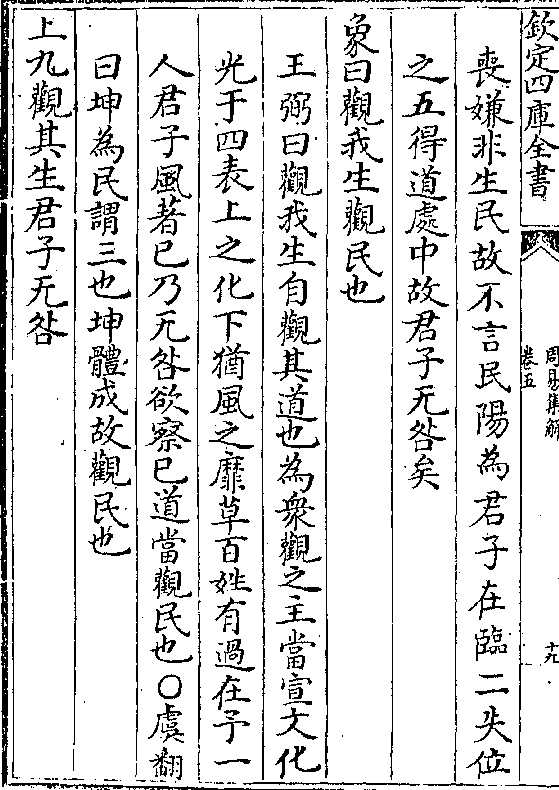 欽定四庫全書
周易集解
卷五
十九
喪嫌非生民故不言民陽為君子在臨二失位
之五得道處中故君子无咎矣
象曰觀我生觀民也
王弼曰觀我生自觀其道也為衆觀之主當宣文化
光于四表上之化下猶風之靡草百姓有過在予一
人君子風著已乃无咎欲察已道當觀民也○虞翻
曰坤為民謂三也坤體成故觀民也
上九觀其生君子无咎